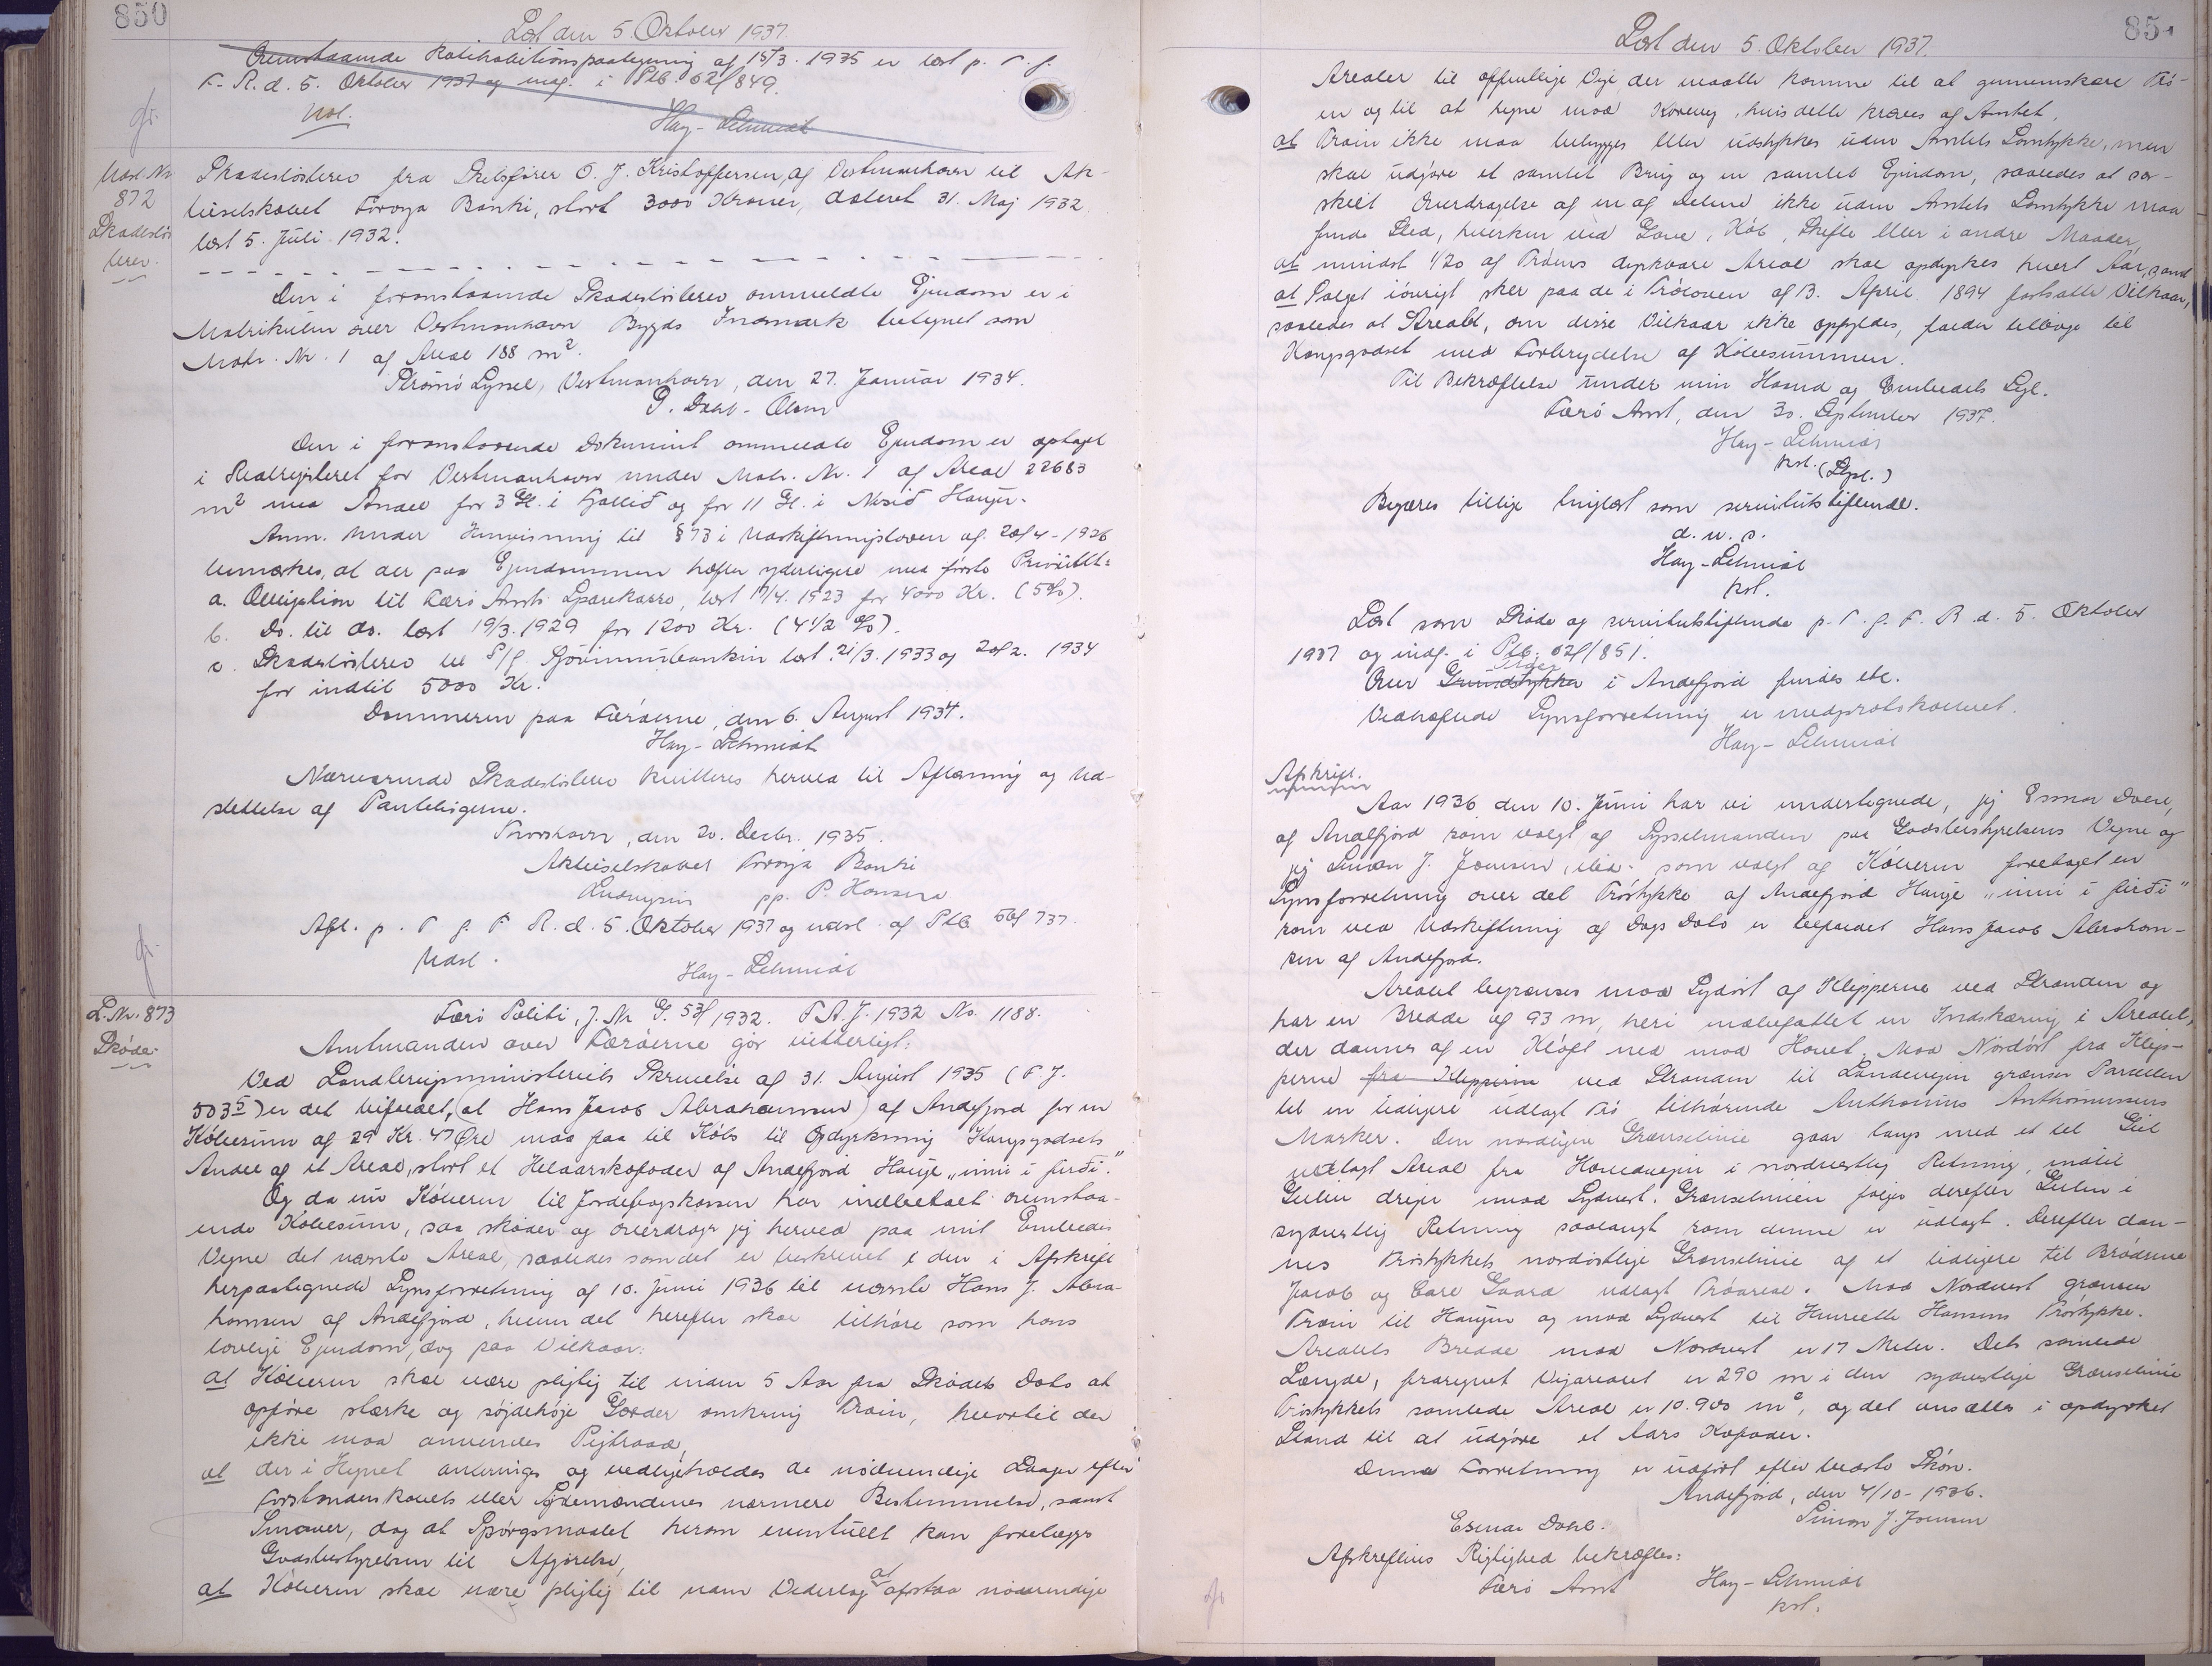 850
Læst den 5. Oktober 1937.
Ovenstaaende Ratihabitionspaategning af 15/3. 1935 er læst p. T. g.
F. R. d. 5. Oktober 1937 og indf. i Ptb. 62/849.
Not.
Hay-Schmidt
Udsl. Nr.
872
Skadesløs
brev.
Skadesløsbrev fra Skibsfører O. J. Kristoffersen, af Vestmanhavn til Ak-
tieselskabet Føroya Banki, stort 3000 Kroner, dateret 31. Maj 1932
læst 5. Juli 1932.
Den i foranstaaende Skadesløsbrev ommeldte Ejendom er i
Matrikulen over Vestmanhavn Bygds Indmark betegnet som
Matr. Nr. 1 af Areal 188 m².
Strømø Syssel, Vestmanhavn, den 27. Januar 1934.
P. Dahl-Olsen
Den i foranstaaende Dokument ommeldte Ejendom er optaget
i Realregisteret for Vestmanhavn under Matr. Nr. 1 af Areal 22683
m² med Andel for 3 Gl. i Fjallið og for 11 Gl. i Haugen.
Anm. Under Henvisning til § 73 i Udskiftningsloven af 20/4-1926
bemærkes, at der paa Ejendommen hæfter yderligere med første Prioritet:
a. Obligation til Færø Amts Sparekasse, læst 17/4. 1923 for 4000 Kr. (5%).
b. Do. til do. læst 19/3. 1929 for 1200 Kr. (4 1/2 %).
c. Skadesløsbrev til P/f. Sjóvinnubankin læst 21/3. 1933 og 20/2. 1934
for indtil 5000 Kr.
Dommeren paa Færøerne, den 6. August 1934.
Hay-Schmidt
Nærværende Skadesløsbrev kvitteres herved til Aflæsning og Ud-
slettelse af Pantebøgerne.
Thorshavn, den 20. Decbr. 1935.
Aktieselskabet Føroya Banki
pp. P. Hansen
Afl. p. T. g. F. R. d. 5. Oktober 1937 og udsl. af Ptb. 737.
Udsl.
Hay-Schmidt
L. Nr. 873
Skøde.
Færø Politi, J. Nr. G. 53/1932. F. A. J. 1932 No. 1188.
Amtmanden over Færøerne gør vitterligt:
Ved Landbrugsministeriets Skrivelse af 31. August 1935 (F. J.
5035) er det bifaldet, (at Hans Jacob Abrahamsen) af Andefjord for en
Købesum af 29 Kr. 47 Øre maa faa til Købs til Opdyrkning Kongsgodsets
Andel af et Areal, stort et Helaarskofoder af Andefjord Hauge „inni i firði".
Og da nu Køberen til Jordebogskassen har indbetalt ovenstaa-
ende Købesum, saa skøder og overdrager jeg herved paa mit Embedes
Vegne det nævnte Areal, saaledes som det er beskrevet i den i Afskrift
herpaategnede Synsforretning af 10. Juni 1936 til nævnte Hans J. Abra-
hamsen af Andefjord, hvem det herefter skal tilhøre som hans
lovlige Ejendom, dog paa Vilkaar:
at Køberen skal være pligtig til inden 5 Aar fra Skødets Dato at
opføre stærke og søjdehøje Gærder omkring Trøin, hvortil der
ikke maa anvendes Pigtraad,
at der i Hegnet anbringes og vedligeholdes de nødvendige Laager efter
Forstanderskabets eller Sydemændenes nærmere Bestemmelse, samt
Smoger, dog at Spørgsmaalet herom eventuelt kan forelægges
Godsbestyrelsen til Afgørelse,
at Køberen skal være pligtig til uden Vederlag at afstaa nødvendige
851
Læst den 5. Oktober 1937.
Arealer til offentlige Veje der maatte komme til at gennemskære Trø-
en og til at hegne mod Kørevej, hvis dette kræves af Amtet,
at Trøin ikke maa bebygges eller udstykkes uden Amtets Samtykke, men
skal udgøre et samlet Brug og en samlet Ejendom, saaledes at sær-
skilt Overdragelse af en af Delene ikke uden Amtets Samtykke maa
finde Sted, hverken ved Gave, Køb, Skifte eller i andre Maader,
at mindst 1/20 af Trøens dyrkbare Areal skal opdyrkes hvert Aar, samt
at Salget iøvrigt sker paa de i Trøloven af 13. April 1894 fastsatte Vilkaar,
saaledes at Arealet, om disse Vilkaar ikke opfyldes, falder tilbage til
Kongsgodset med Forbrydelse af Købesummen.
Til Bekræftelse under min Haand og Embedets Segl.
Færø Amt, den 30. September 1937.
Hay-Schmidt
kst. (Segl.)
Begæres tillige tinglæst som servitutstiftende.
d. u. s.
Hay-Schmidt
kst.
Læst som Skøde og servitutstiftende p. T. g. F. R. d. 5. Oktober
1937 og indf. i Ptb. 62/851.
Over Grundstykke i Andefjord findes ike.
Vedhæftede Synsforretning er medprotokolleret.
Hay-Schmidt
Afskrift.
Aar 1936 den 10. Juni har vi undertegnede, jeg Esmar Dahl,
af Andefjord som valgt af Sysselmanden paa Godsbestyrelsens Vegne og
jeg Simon J. Joensen, ibid. som valgt af Køberen foretaget en
Synsforretning over det Trøstykke af Andefjord Hauge „inni i firði"
som ved Udskiftning af Dags Dato er tilfaldet Hans Jacob Abraham-
sen af Andefjord.
Arealet begrænses mod Sydøst af Klipperne ved Stranden og
har en Bredde af 93 m, heri indbefattet en Indskæring i Arealet,
der dannes af en Kløft ned mod Havet. Mod Nordøst fra Klip-
perne fra Klipperne ved Stranden til Landevejen grænser Parcellen
til en tidligere udlagt Trø, tilhørende Anthonius Anthoniussens
Marker. Den nordligere Grænselinie gaar langs med et til Geil
udlagt Areal fra Hovedvejen i nordvestlig Retning, indtil
Geilin drejer mod Sydvest. Grænselinien følger derefter Geilin i
sydvestlig Retning saalangt som denne er udlagt. Derefter dan-
nes Trøstykkets nordøstlige Grænselinie af et tidligere til Brødrene
Jacob og Carl Gaard udlagt Trøareal. Mod Nordvest grænser
Trøin til Haugen og mod Sydvest til Henriette Hansens Trøstykke.
Arealets Bredde mod Nordvest er 17 Meter. Dets samlede
Længde, fraregnet Vejarealet er 290 m i den sydvestlige Grænselinie
Trøstykkets samlede Areal er 10.900 m², og det ansættes i opdyrket
Stand til at udgøre et Aars Kofoder.
Denne Forretning er udført efter bedste Skøn.
Andefjord, den 4/10-1936.
Esmar Dahl. Simon J. Joensen
Afskriftens Rigtighed bekræftes:
Færø Amt Hay-Schmidt
kst.